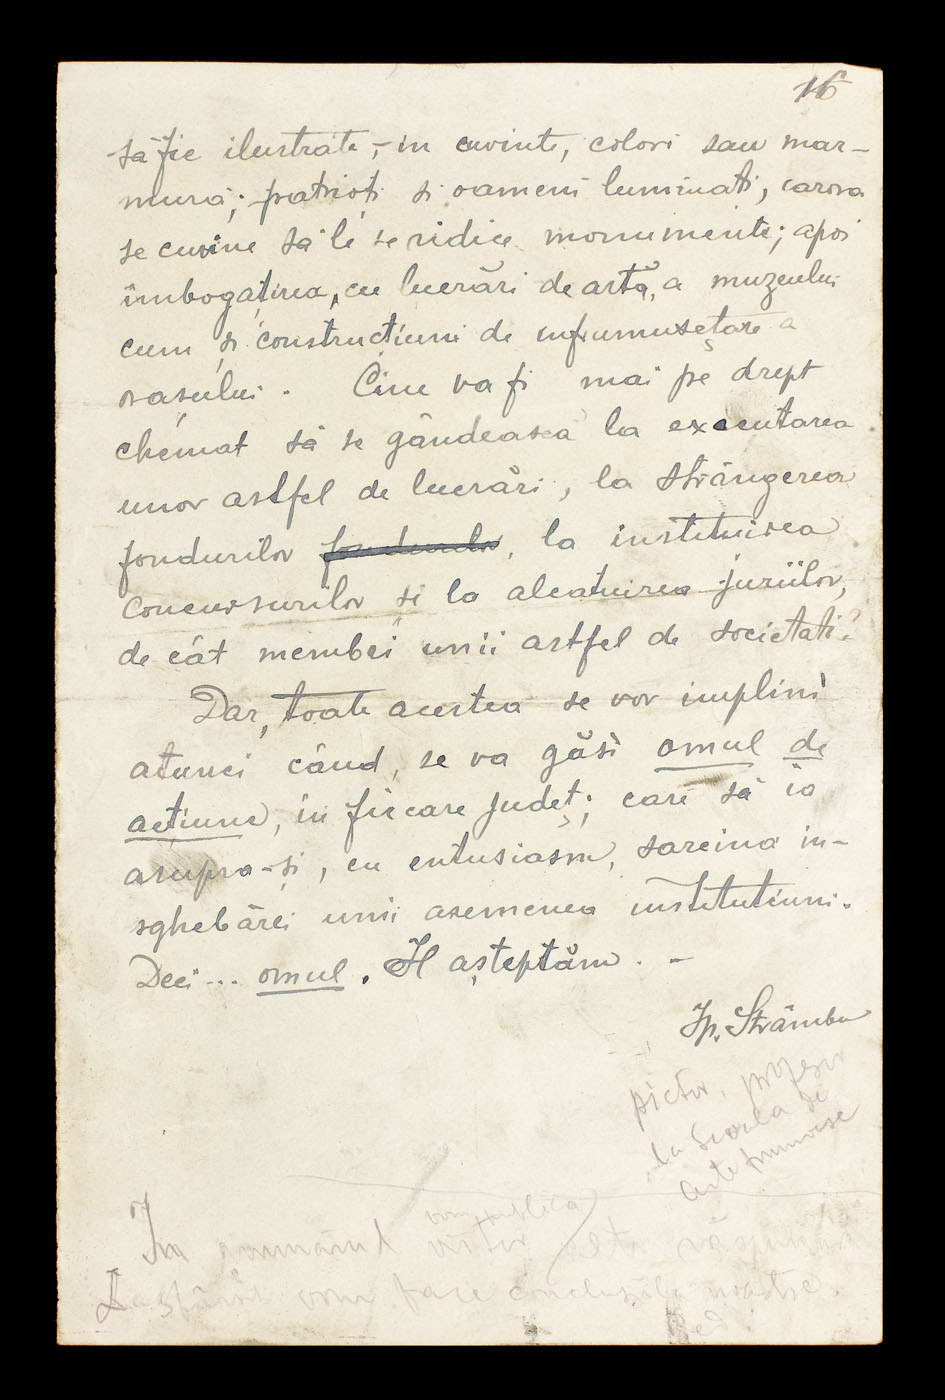 16
să fie ilustrate, – in cuvinte, colori sau mar-
mură; patrioți si oameni luminati, carora
se cuvine să le se ridice monumente; apoi
îmbogațirea, cu lucrări de artă, a muzeului
cum și construcțiuni de infrumusețare a
orașului. Cine va fi mai pe drept
chemat să se gândească la executarea
unor astfel de lucrări, la strângerea
fondurilor fondurilor, la instituirea
concursurilor si la alcatuirea juriilor,
de cât membri unii astfel de societati?
Dar, toate acestea se vor implini
atunci când, se va găsi omul de
acțiune, in fiecare județ; care să ia
asupra-și, cu entusiasm, sarcina in-
sghebărei unii asemenea institutiuni.
Deci ... omul. Il așteptăm. –
Ip. Strâmbu
pictor, profesor
la Scoala de
arte frumoase
In numărul viitor vom publica alte răspunsuri
La sfârsit vom face concluziile noastre.